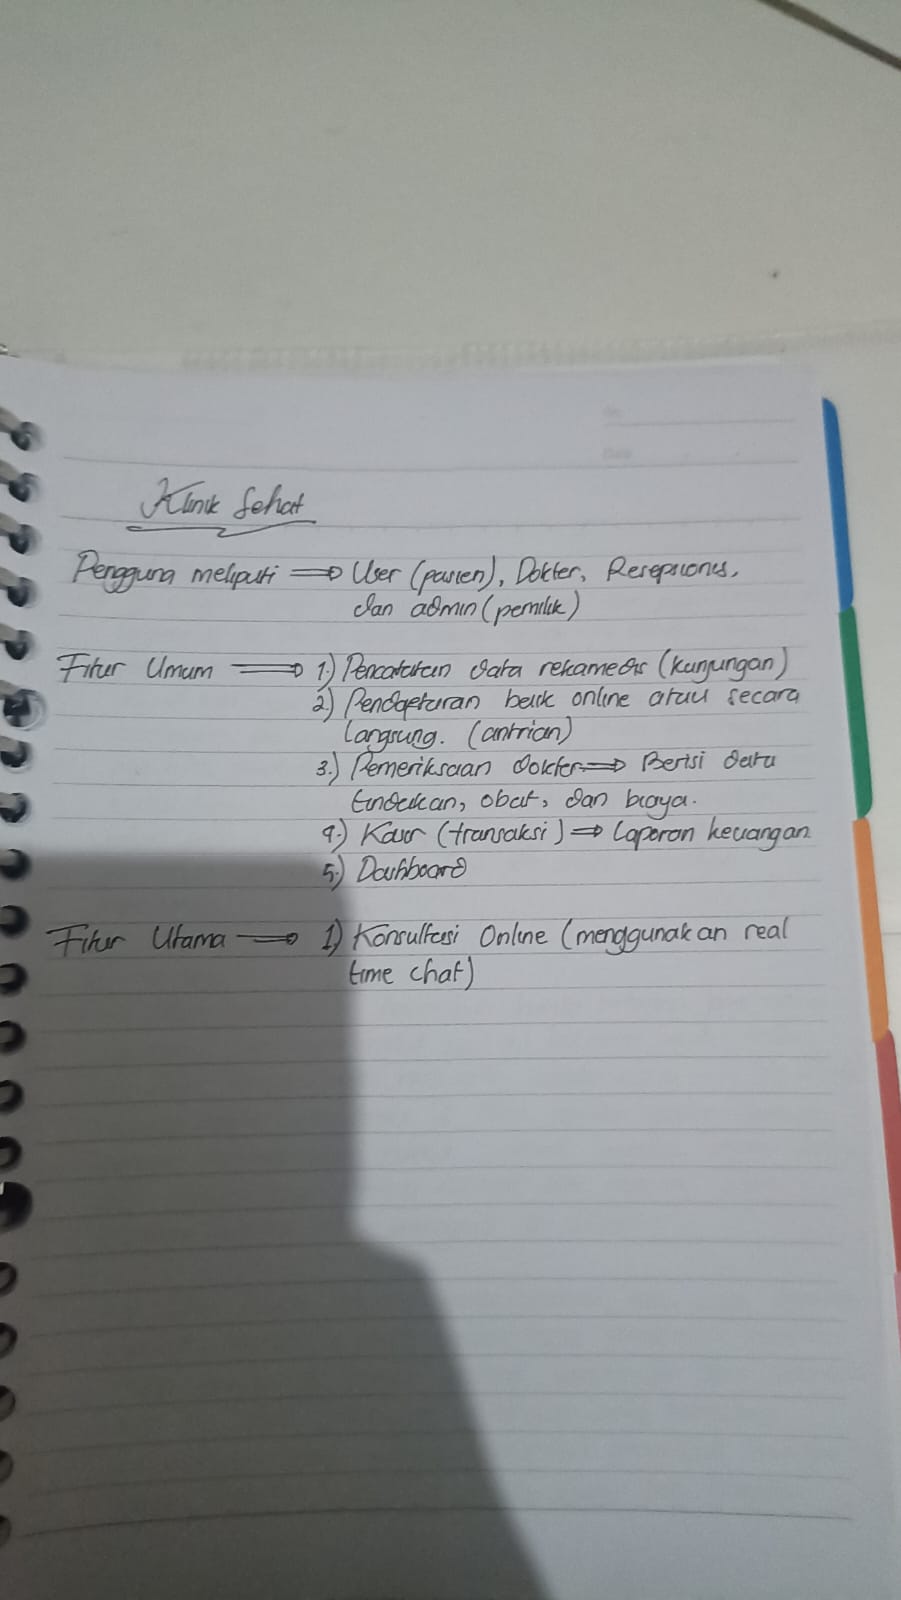 Klinik Sehat
Pengguna meliputi => User (pasien), Dokter, Resepsionis,
dan admin (pemilik)
Fitur Umum => 1.) Pencatatan data rekamedis (kunjungan)
2.) Pendaftaran baik online atau secara
langsung. (antrian)
3.) Pemeriksaan dokter => Berisi data
tindakan, obat, dan biaya.
4.) Kasir (transaksi) => Laporan keuangan
5.) Dashboard
Fitur Utama => 1) Konsultasi Online (menggunakan real
time chat)